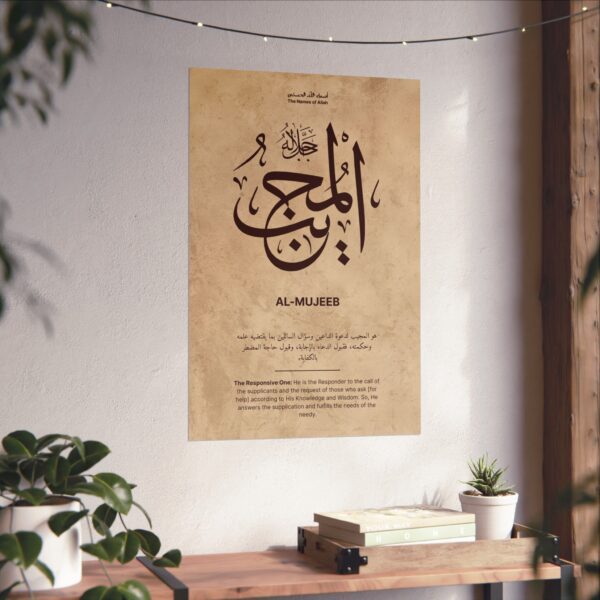 أسماء الله الحسنى
The Names of Allah
جل جلاله
المجيب
AL-MUJEEB
هو المجيب لدعوة الداعين وسؤال السائلين بما يقتضيه علمه
وحكمته، فقبول الدعاء بالإجابة، وقبول حاجة المضطر
بالكفاية.
The Responsive One: He is the Responder to the call of
the supplicants and the request of those who ask (for
help) according to His Knowledge and Wisdom. So, He
answers the supplication and fulfills the needs of the
needy.
HOME